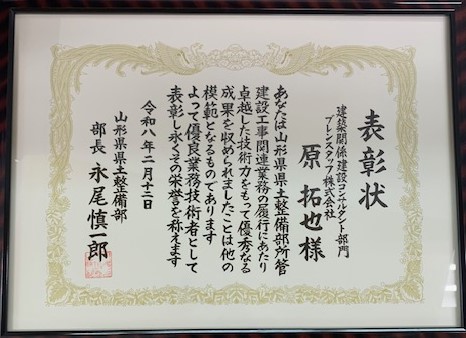 表彰状
建築関係建設コンサルタント部門
ブレンスタッフ株式会社
原 拓也 様
あなたは山形県県土整備部所管
建設工事関連業務の履行にあたり
卓越した技術力をもって優秀なる
成果を収められましたことは他の
模範となるものであります
よって優良業務技術者として
表彰し永くその栄誉を称えます
令和八年二月十三日
山形県県土整備部
部長 永尾慎一郎